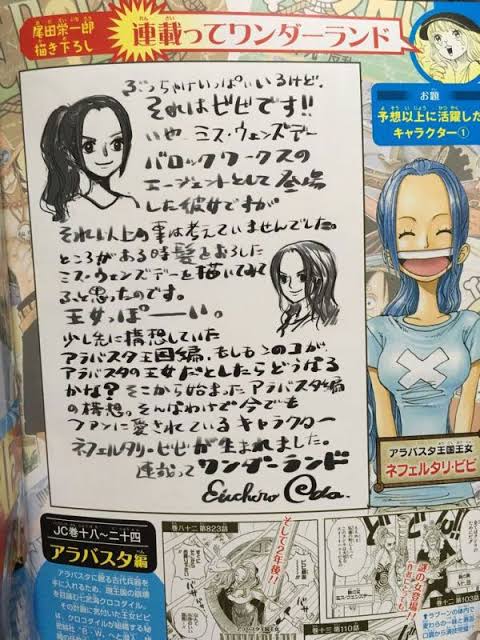 尾田栄一郎
描き下ろし
連載ってワンダーランド
お題
予想以上に活躍した
キャラクター①
ぶっちゃけいっぱいいるけど、
それはビビです!!
いや、ミス・ウェンズデー
バロックワークスの
エージェントとして登場
した彼女ですが
それ以上の事は考えていませんでした。
ところがある時髪をおろした
ミス・ウェンズデーを描いてみて
ふと思ったのです。
王女っぽーい。
少し先に構想していた
アラバスタ王国編、もしもこのコが、
アラバスタの王女だとしたらどうなる
かな?そこから始まったアラバスタ編
の構想。そんなわけで今でも
ファンに愛されているキャラクター
ネフェルタリ・ビビが生まれました。
連載って ワンダーランド
Eiichiro Oda.
アラバスタ王国王女
ネフェルタリ・ビビ
JC巻十八〜二十四
アラバスタ編
アラバスタに眠る古代兵器を
手に入れるため、
七武海クロコダイル。
その計画に気付いた王女ビビ
は、クロコダイルが組織する秘
巻八十二 第823話
そして2年後!!
謎の女登場!
巻十二 第103話
巻十三 第110話